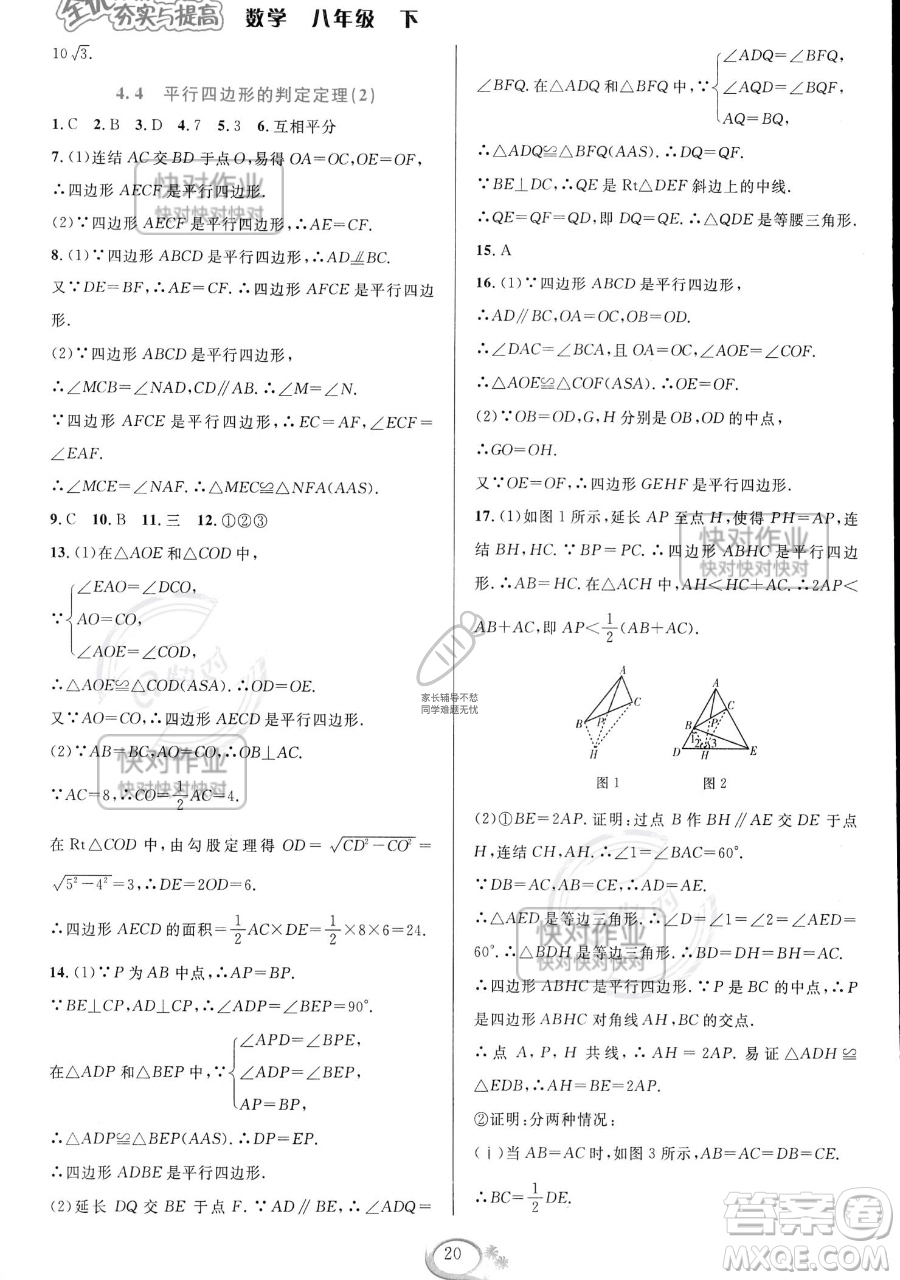 全优
夯实与提高 数学 八年级 下
10√3.
4.4 平行四边形的判定定理(2)
1.C 2.B 3.D 4.7 5.3 6.互相平分
7.(1)连结 AC 交 BD 于点 O,易得 OA=OC,OE=OF,
∴四边形 AECF 是平行四边形.
(2)∵四边形 AECF 是平行四边形,∴AE=CF.
8.(1)∵四边形 ABCD 是平行四边形,∴AD∥BC.
又∵DE=BF,∴AE=CF.∴四边形 AFCE 是平行四边
形.
(2)∵四边形 ABCD 是平行四边形,
∴∠MCB=∠NAD,CD∥AB.∴∠M=∠N.
∵四边形 AFCE 是平行四边形,∴EC=AF,∠ECF=
∠EAF.
∴∠MCE=∠NAF.∴△MEC≌△NFA(AAS).
9.C 10.B 11.三 12.①②③
13.(1)在△AOE 和△COD 中,
∵{∠EAO=∠DCO,
AO=CO,
∠AOE=∠COD,
∴△AOE≌△COD(ASA).∴OD=OE.
又∵AO=CO,∴四边形 AECD 是平行四边形.
(2)∵AB=BC,AO=CO,∴OB⊥AC.
∵AC=8,∴CO=1/2AC=4.
在 Rt△COD 中,由勾股定理得 OD=√(CD²-CO²)=
√(5²-4²)=3,∴DE=2OD=6.
∴四边形 AECD 的面积=1/2AC×DE=1/2×8×6=24.
14.(1)∵P 为 AB 中点,∴AP=BP.
∵BE⊥CP,AD⊥CP,∴∠ADP=∠BEP=90°.
在△ADP 和△BEP 中,{∠APD=∠BPE,
∠ADP=∠BEP,
AP=BP,
∴△ADP≌△BEP(AAS).∴DP=EP.
∴四边形 ADBE 是平行四边形.
(2)延长 DQ 交 BE 于点 F.∵AD∥BE,∴∠ADQ=
∠BFQ.在△ADQ 和△BFQ 中,{∠ADQ=∠BFQ,
∠AQD=∠BQF,
AQ=BQ,
∴△ADQ≌△BFQ(AAS).∴DQ=QF.
∵BE⊥DC,∴QE 是 Rt△DEF 斜边上的中线.
∴QE=QF=QD,即 DQ=QE.∴△QDE 是等腰三角形.
15.A
16.(1)∵四边形 ABCD 是平行四边形,
∴AD∥BC,OA=OC,OB=OD.
∴∠DAC=∠BCA,且 OA=OC,∠AOE=∠COF.
∴△AOE≌△COF(ASA).∴OE=OF.
(2)∵OB=OD,G,H 分别是 OB,OD 的中点,
∴GO=OH.
又∵OE=OF,∴四边形 GEHF 是平行四边形.
17.(1)如图 1 所示,延长 AP 至点 H,使得 PH=AP,连
结 BH,HC.∵BP=PC,∴四边形 ABHC 是平行四边
形.∴AB=HC.在△ACH 中,AH<HC+AC.∴2AP<
AB+AC,即 AP<1/2(AB+AC).
A
B P C
H
图 1
A
B P C
1 2 3
D H E
图 2
(2)①BE=2AP.证明:过点 B 作 BH∥AE 交 DE 于点
H,连结 CH,AH.∴∠1=∠BAC=60°.
∵DB=AC,AB=CE,∴AD=AE.
∴△AED 是等边三角形.∴∠D=∠1=∠2=∠AED=
60°.∴△BDH 是等边三角形.∴BD=DH=BH=AC.
∴四边形 ABHC 是平行四边形.∵P 是 BC 的中点,∴P
是四边形 ABHC 对角线 AH,BC 的交点.
∴点 A,P,H 共线.∴AH=2AP.易证△ADH≌
△EDB,∴AH=BE=2AP.
②证明:分两种情况:
(ⅰ)当 AB=AC 时,如图 3 所示,∴AB=AC=DB=CE.
∴BC=1/2DE.
20
快对作业
快对快对快对
快对作业
快对快对快对
快对作业
快对快对快对
快对作业
快对快对快对
家长辅导不愁
同学难题无忧
答案圈
MXQE.COM